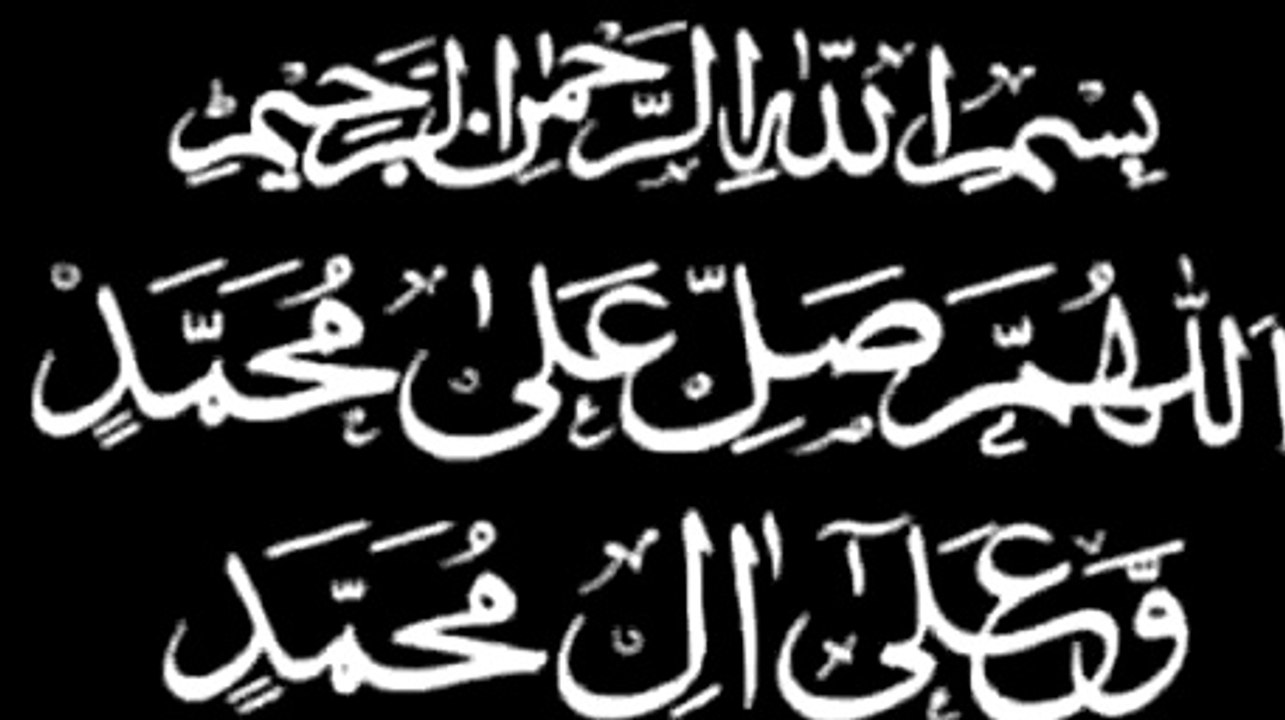 بِسْمِ اللّٰهِ الرَّحْمٰنِ الرَّحِيْمِ
اَللّٰهُمَّ صَلِّ عَلٰى مُحَمَّدٍ
وَّعَلٰٓى اٰلِ مُحَمَّدٍ